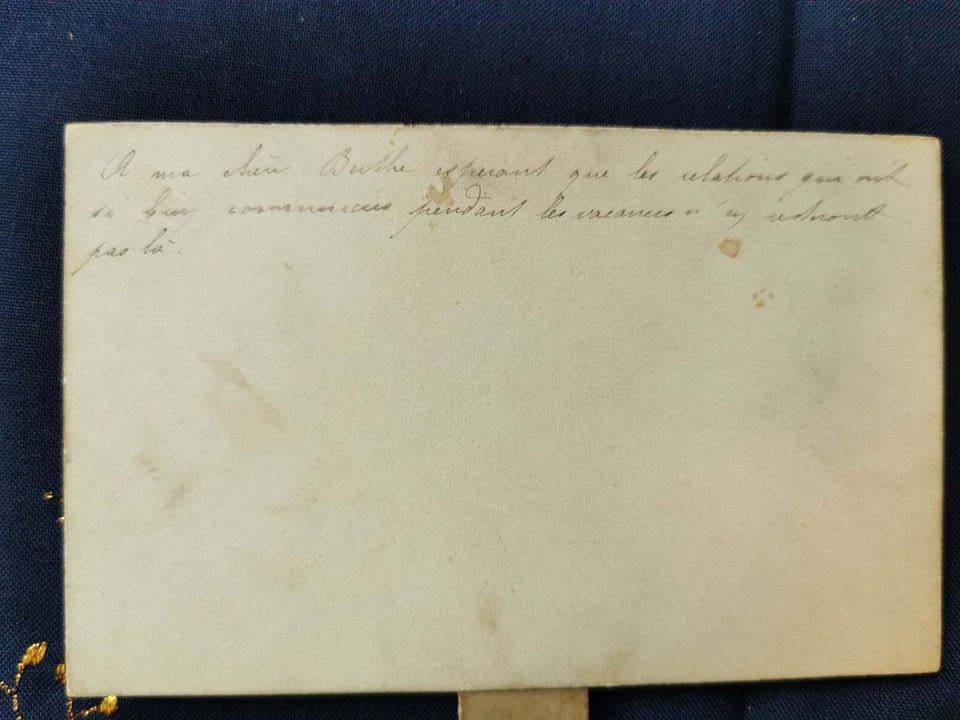 A ma chère Berthe esperant que les relations qui ont
si bien commencées pendant les vacances n'en resteront
pas là.